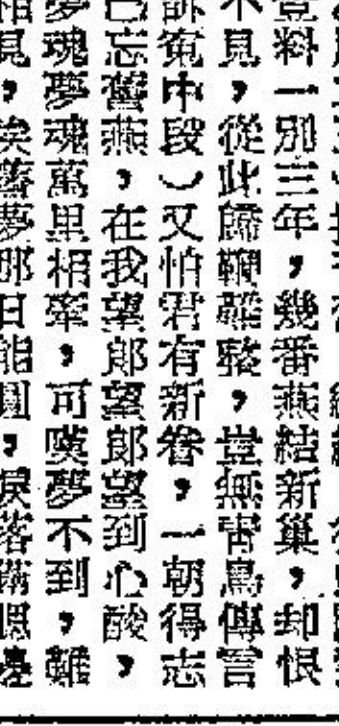 豈料一別三年，幾番燕結新巢，却恨
不見，從此歸鞭難整，豈無青鳥傳言
訴寃中段）又怕君有新卷，一朝得志
已忘舊燕，在我望郎望郎望到心酸，
夢魂夢魂萬里相牽，可嘆夢不到，難
相見，夢那日能圓，淚落滿腮邊